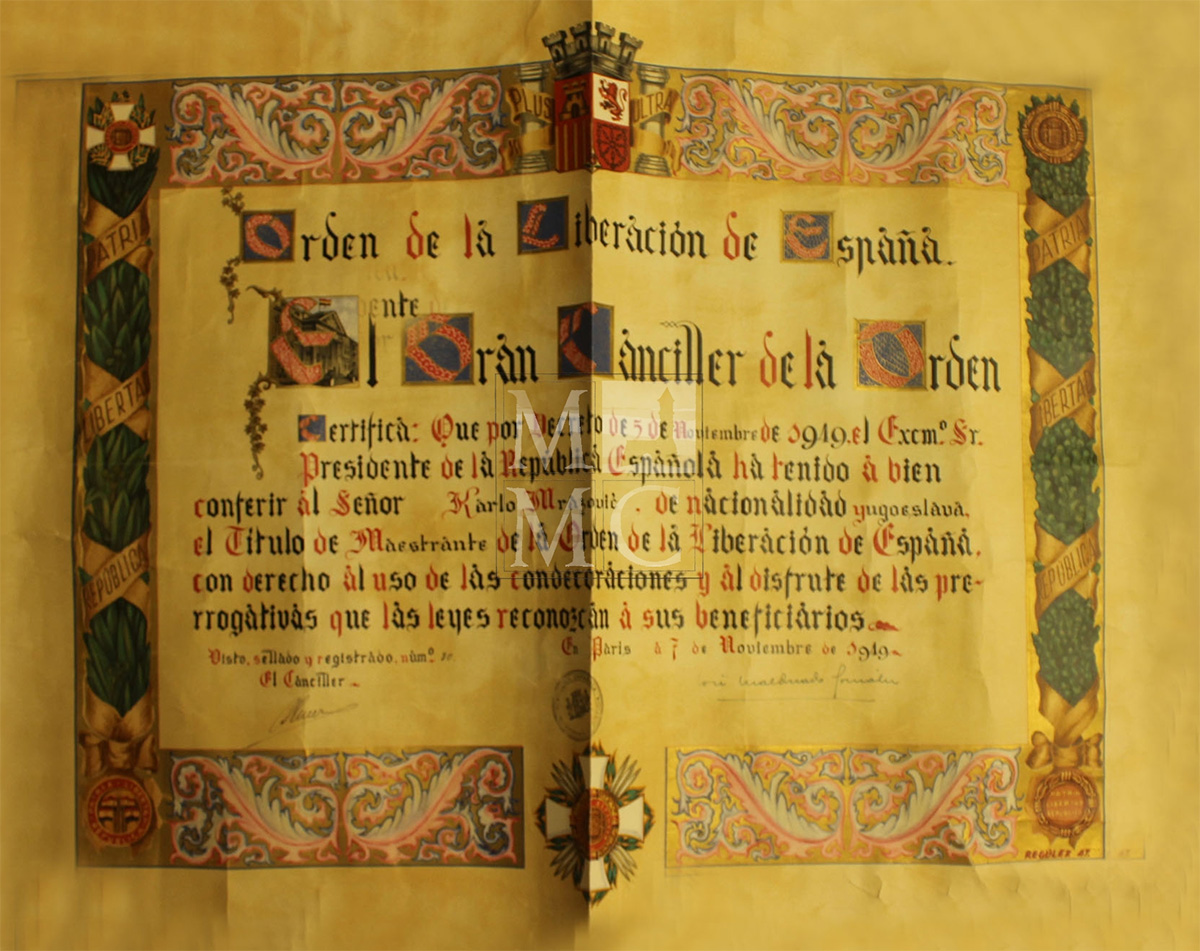 PLUS ULTRA
PATRIA
PATRIA
Orden de la Liberación de España.
El Gran Canciller de la Orden
LIBERTAD
LIBERTAD
Certifica: Que por Decreto de 5 de Noviembre de 1949, el Excmº. Sr.
Presidente de la República Española ha tenido a bien
conferir al Señor Karlo Mrazović, de nacionalidad yugoeslava,
el Título de Maestrante de la Orden de la Liberación de España,
con derecho al uso de las condecoraciones y al disfrute de las pre-
rrogativas que las leyes reconozcan a sus beneficiarios.
REPÚBLICA
REPÚBLICA
En París a 7 de Noviembre de 1949
Visto, sellado y registrado, númº
El Canciller
MH
MC
REGULEZ